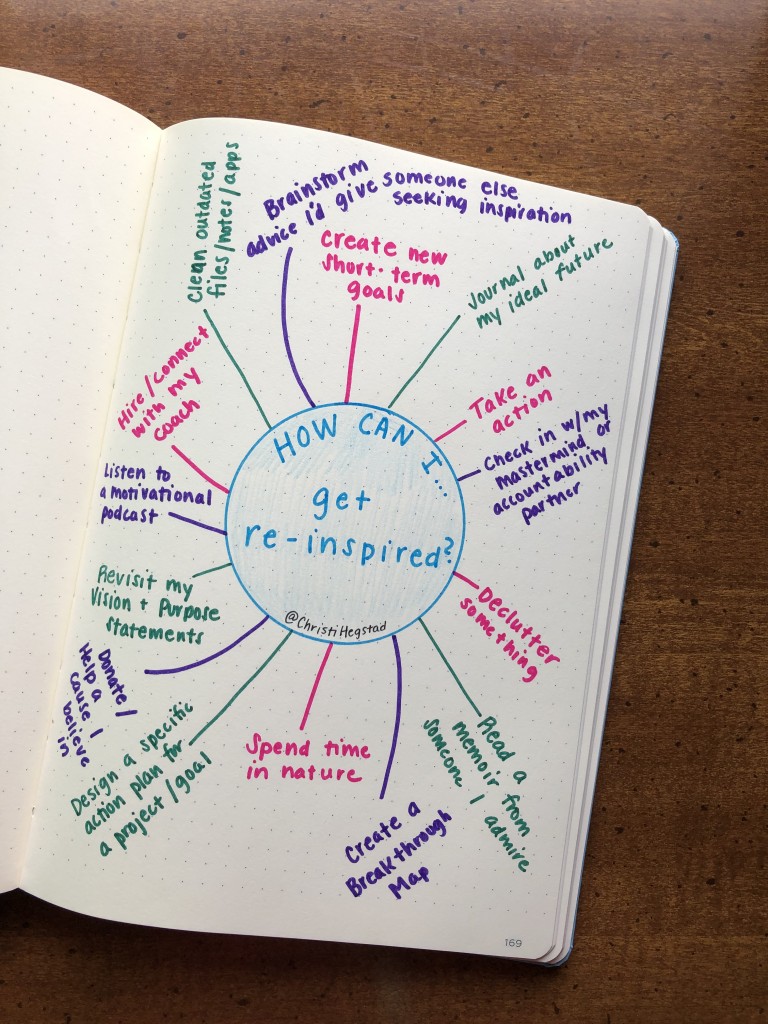 HOW CAN I...
get
re-inspired?
@ChristiHegstad
Clean outdated
files/notes/apps
Brainstorm
advice i'd give someone else
seeking inspiration
Create new
short-term
goals
Journal about
my ideal future
Take an
action
Check in w/my
mastermind or
accountability
partner
Declutter
something
Read a
memoir from
someone I admire
Create a
Breakthrough
Map
Spend time
in nature
Design a specific
action plan for
a project/goal
Donate/
Help a
cause I
believe
in
Revisit my
Vision + Purpose
statements
Listen to
a motivational
podcast
Hire/connect
with my
coach
169